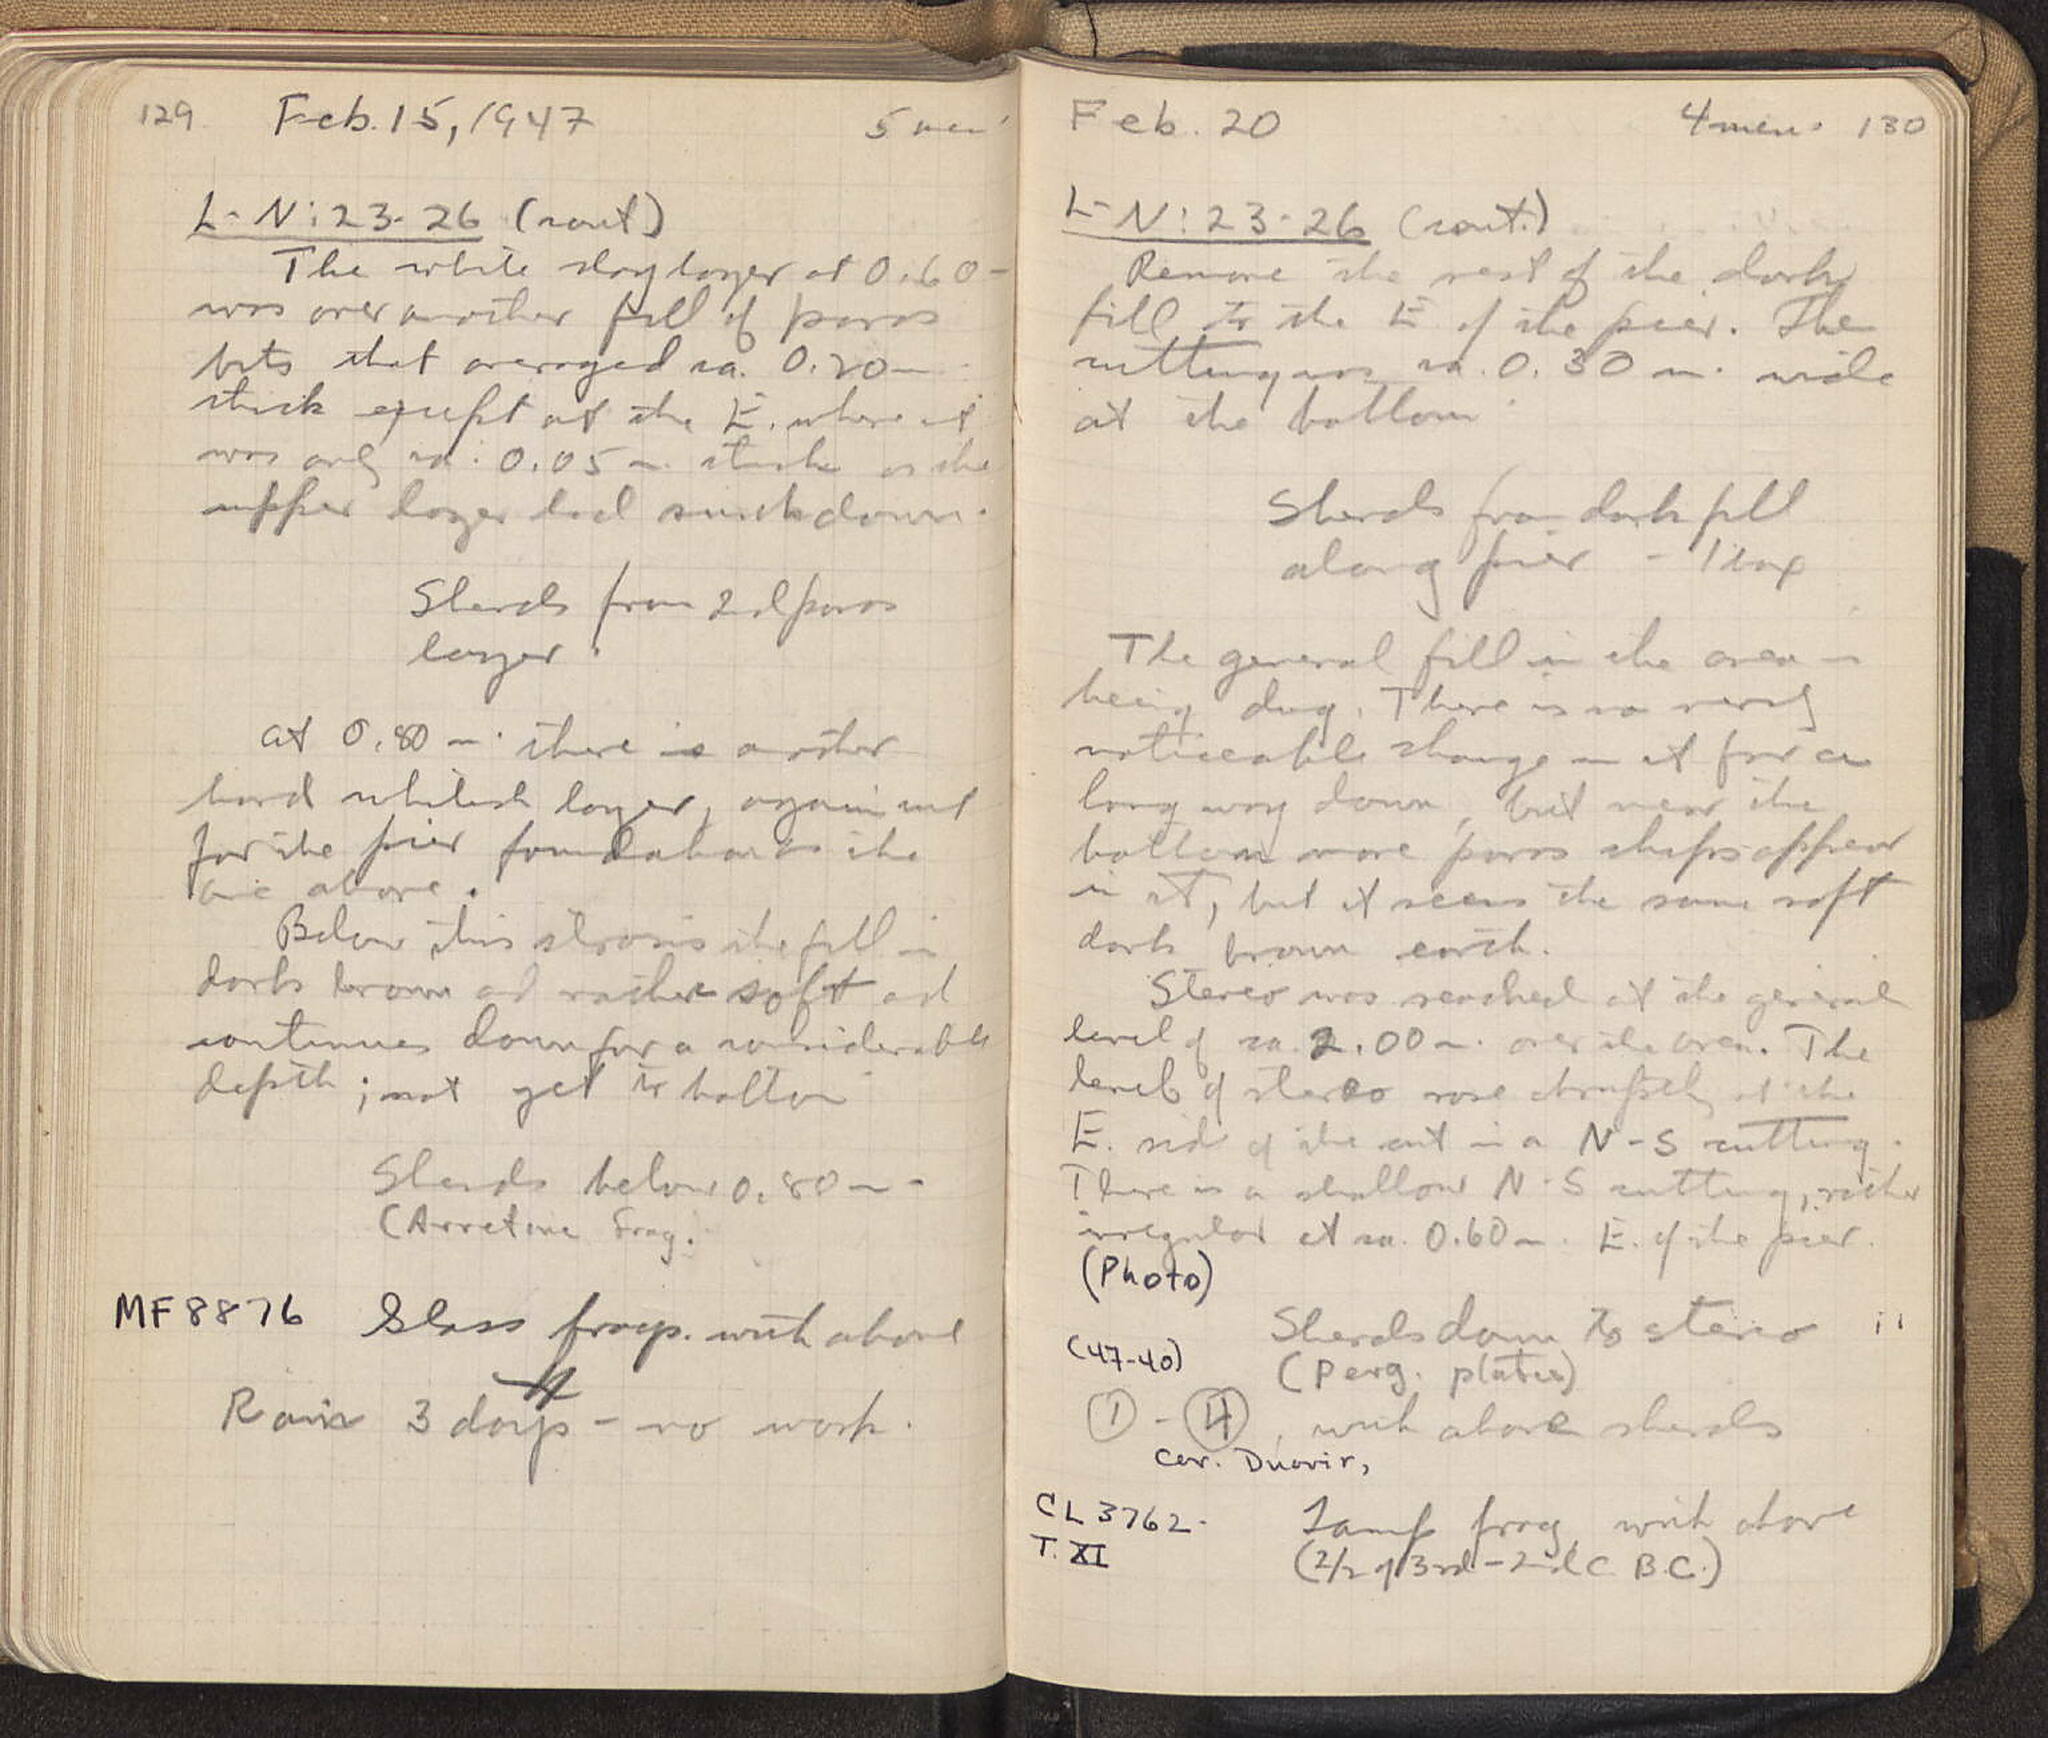 129 Feb. 15, 1947 5 men
L-N:23-26 (cont)
The white clay layer at 0.60 m
was over another fill of poros
bits that averaged ca. 0.20 m
thick except at the E. where it
was only ca. 0.05 m. thick as the
upper layer had sunk down.
Sherds from 2nd poros
layer.
At 0.80 m. there is another
hard whitish layer, again cut
for the pier foundation as the
one above.
Below this strosis the fill is
dark brown and rather soft and
continues down for a considerable
depth; not yet to bottom
Sherds below 0.80 m.
(Arretine frag.
MF8876 Glass frags. with above
Rain 3 days - no work.
Feb. 20 4 men. 130
L-N:23-26 (cont.)
Remove the rest of the dark
fill to the E. of the pier. The
cutting was ca. 0.30 m. wide
at the bottom
Sherds from dark fill
along pier - 1 tray
The general fill in the area is
being dug. There is no very
noticeable change in it for a
long way down, but near the
bottom more poros chips appear
in it, but it seems the same soft
dark brown earth.
Stereo was reached at the general
level of ca. 2.00 m. over the area. The
level of stereo rose abruptly at the
E. side of the cut in a N-S cutting.
There is a shallow N-S cutting, rather
irregular at ca. 0.60 m. E. of the pier.
(Photo)
Sherds down to stereo
(47-40) (Perg. plates)
① - ④, with above sherds
Cor. Duovir,
CL 3762. Lamp frag. with above
T. XI (2/2 of 3rd - 2nd C. B.C.)